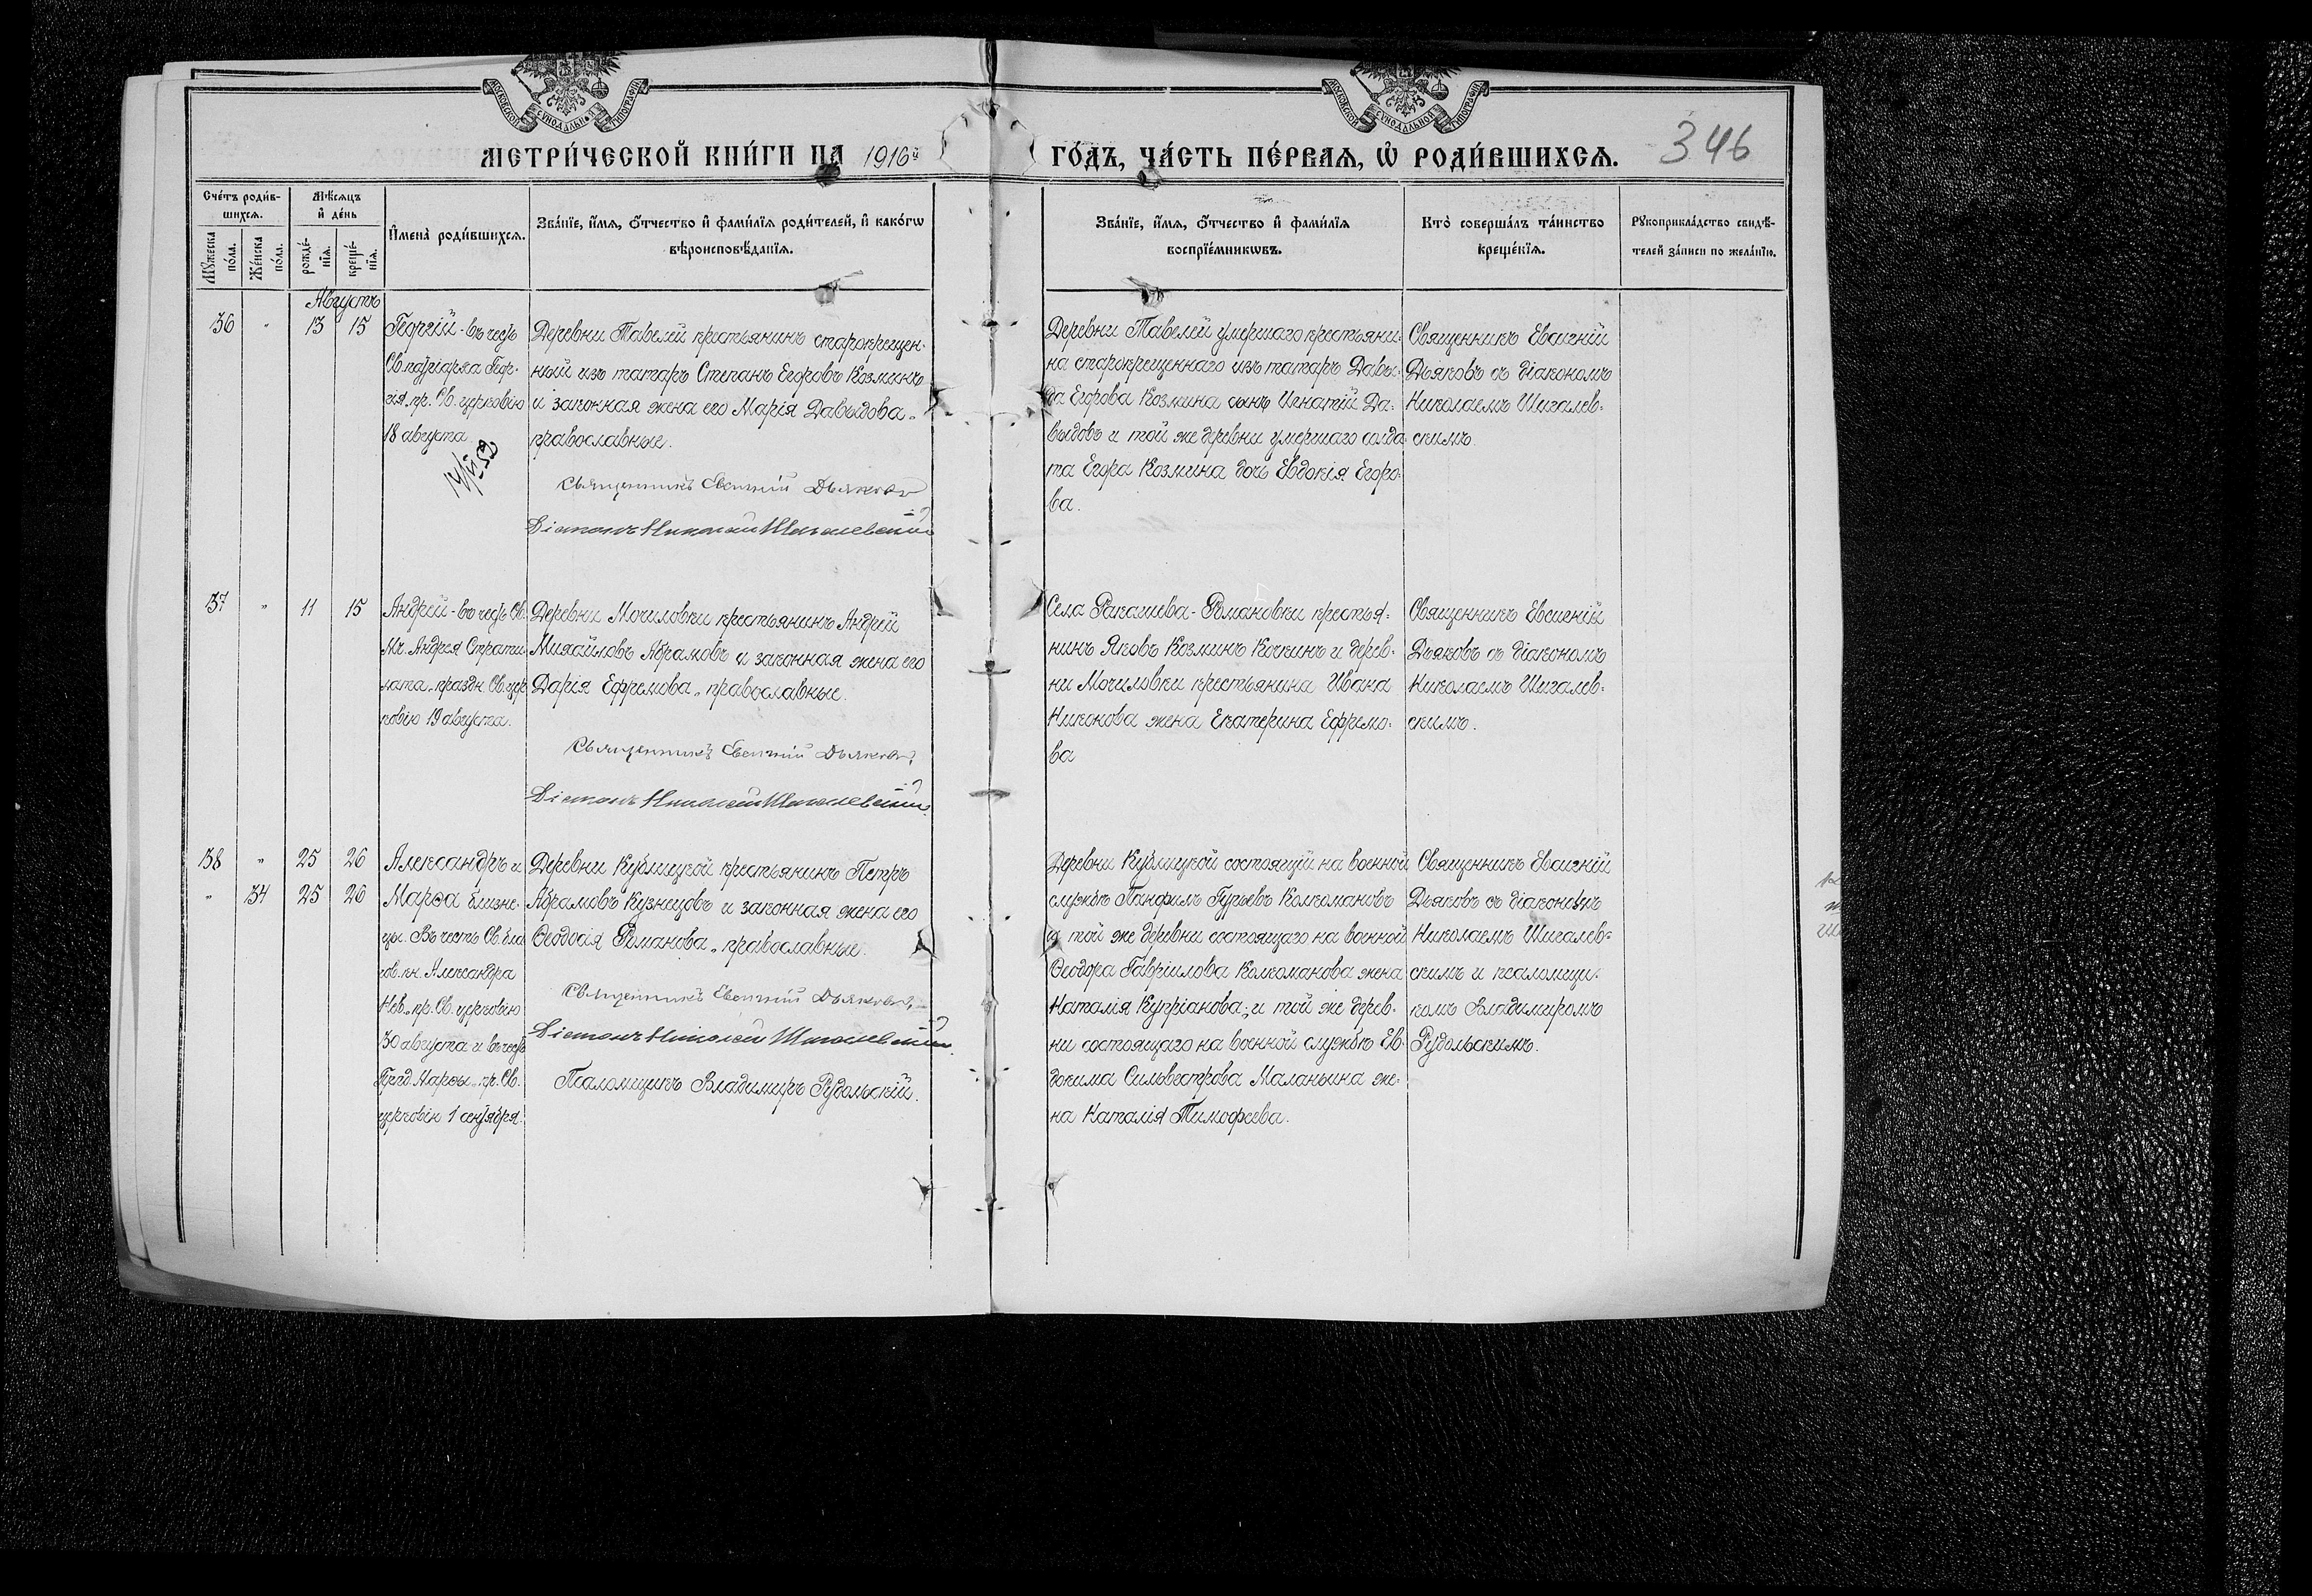 МОСКОВСКОЙ СУНОДАЛЬНОЙ ТИПОГРАФІИ
МОСКОВСКОЙ СУНОДАЛЬНОЙ ТИПОГРАФІИ
МЕТРИ́ЧЕСКОЙ КНИ́ГИ НА 1916й
ГО́ДЪ, ЧА́СТЬ ПЕ́РВАѦ, Ѡ РОДИ́ВШИХСѦ.
346
Сче́тъ роди́в-
шихсѧ.
Мꙋжеска по́ла.
Же́нска по́ла.
Мѣ́сѧцъ
и҆ де́нь
рожде́-
нїѧ.
креще́-
нїѧ.
И҆мена̀ роди́вшихсѧ.
Зва́нїе, и҆́мѧ, о҆́тчество и҆ фами́лїѧ роди́телей, и҆ како́гѡ
вѣроисповѣ́данїѧ.
Зва́нїе, и҆́мѧ, о҆́тчество и҆ фами́лїѧ
воспрїе́мникѡвъ.
Кто̀ соверша́лъ та́инство
креще́нїѧ.
Рꙋкоприкла́дство свидѣ́-
телей за́писи по жела́нїю.
Августъ
36 " 13 15
Георгій - въ честь
Св. патріарха Геор-
гія, пр. Св. церковію
18 августа
Деревни Тавелей крестьянинъ старокрещен-
ный изъ татаръ Степанъ Егоровъ Козминъ
и законная жена его Марія Давыдова,
православные.
Священникъ Евгеній Дьяковъ
Діаконъ Николай Шигалевскій
Деревни Тавелей умершаго крестьяни-
на старокрещеннаго изъ татаръ Давы-
да Егорова Козмина сынъ Игнатій Да-
выдовъ и той же деревни умершаго солда
та Егора Козмина дочь Евдокія Егоро-
ва.
Священникъ Евгеній
Дьяковъ съ діакономъ
Николаемъ Шигалев-
скимъ.
37 " 11 15
Андрей - въ честь Св.
Мч. Андрея Страти
лата, праздн. Св. цер
ковію 19 августа.
Деревни Мочиловки крестьянинъ Андрей
Михайловъ Абрамовъ и законная жена его
Дарія Ефремова, православные.
Священникъ Евгеній Дьяковъ,
Діаконъ Николай Шигалевскій.
Села Ракашева-Романовки крестья-
нинъ Яковъ Козминъ Кочкинъ и дерев-
ни Мочиловки крестьянина Ивана
Никонова жена Екатерина Ефремо-
ва
Священникъ Евгеній
Дьяковъ съ діакономъ
Николаемъ Шигалев-
скимъ.
38 " 25 26
" 34 25 26
Александръ и
Марѳа близне-
цы. Въ честь Св. бла
гов. кн. Александра
Нев., пр. Св. церковію
30 августа и въ честь
Прпд. Марѳы, пр. Св.
церковію 1 сентября.
Деревни Кублицкой крестьянинъ Петръ
Абрамовъ Кузнецовъ и законная жена его
Ѳеодосія Романова, православные.
Священникъ Евгеній Дьяковъ,
Діаконъ Николай Шигалевскій.
Псаломщикъ Владимиръ Рудольскій.
Деревни Кублицкой состоящій на военной
службѣ Панфилъ Гурьевъ Колкомановъ
и той же деревни состоящаго на военной
Ѳеодора Гавріилова Колкоманова жена
Наталія Купріанова, и той же дерев-
ни состоящаго на военной службѣ Ев-
докима Сильвестрова Маланьина же-
на Наталія Тимофеева.
Священникъ Евгеній
Дьяковъ съ діакономъ
Николаемъ Шигалев-
скимъ и псаломщи-
комъ Владимиромъ
Рудольскимъ.